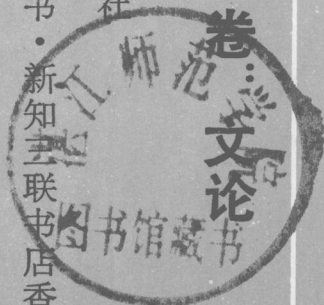 卷:文论
社
书·新知三联书店香
江师范学院
图书馆藏书